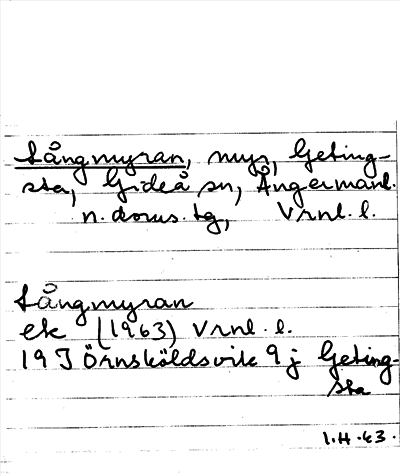 Långmyran, myr, Geting-
sta, Gideå sn, Ångermanl.
n. doms. tg, Vrnl. l.
Långmyran
ek (1963) Vrnl. l.
19 J Örnsköldsvik 9 j Geting-
sta
I.H.63.